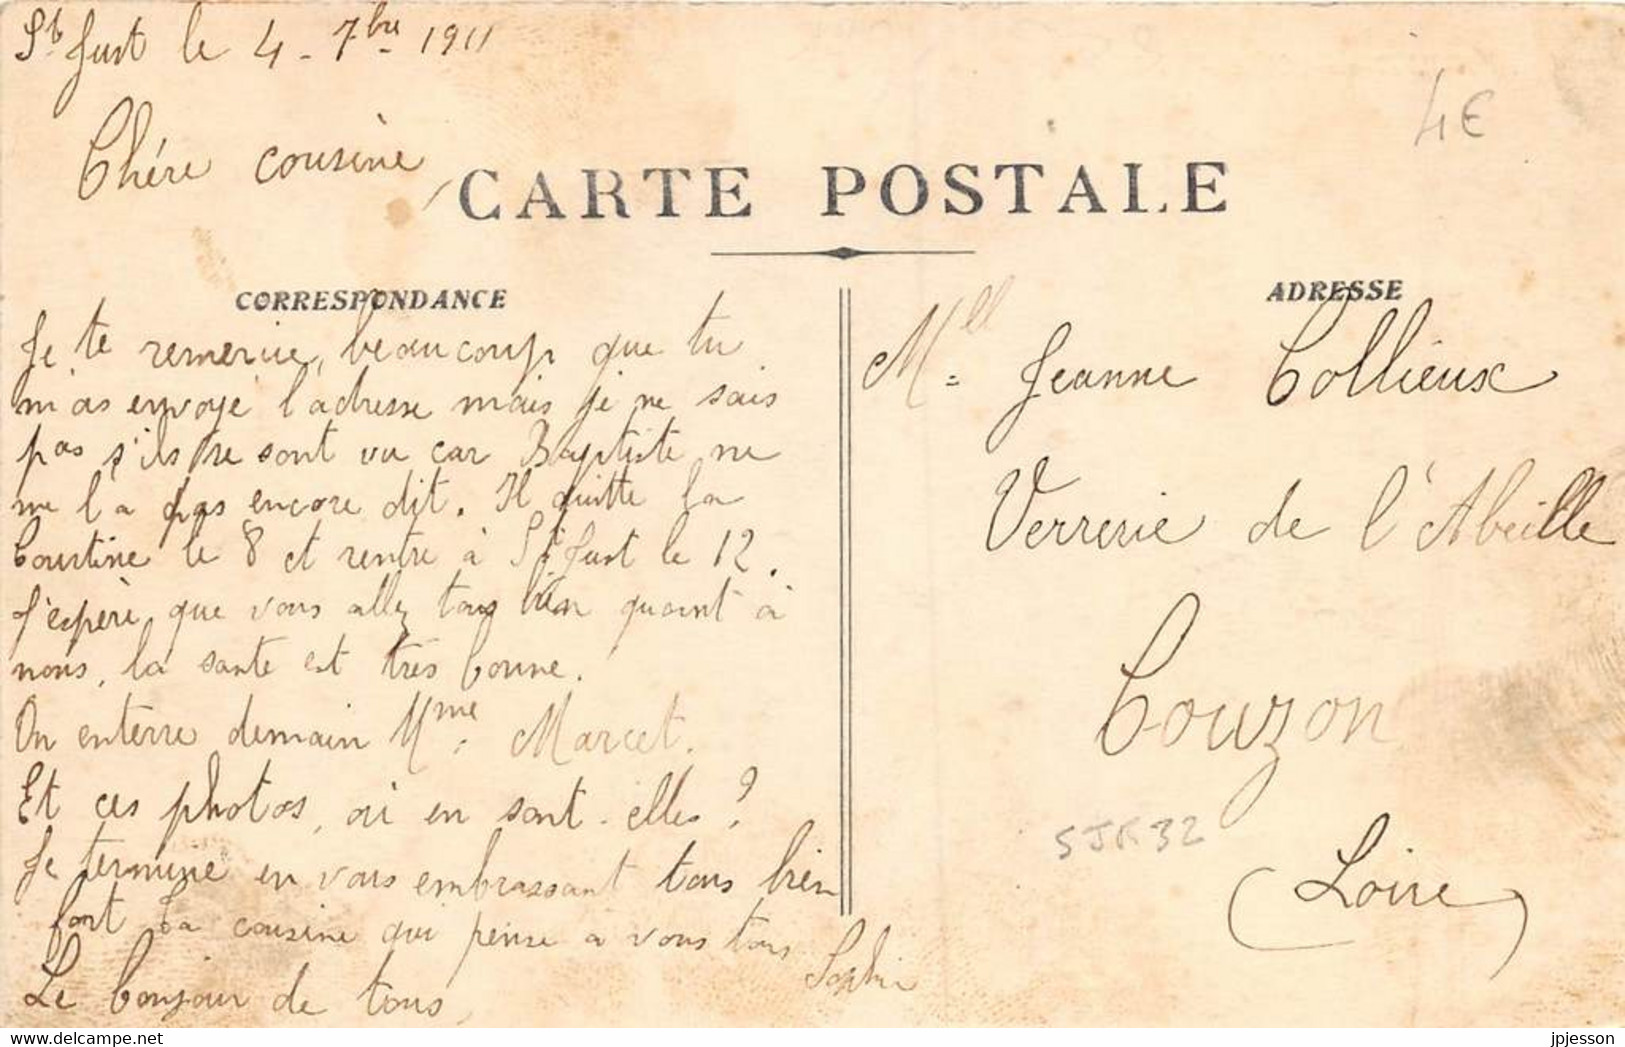 St Just le 4 - 7bre 1911
4€
Chère cousine,
CARTE POSTALE
CORRESPONDANCE
Je te remercie, beaucoup que tu
m'as envoyé l'adresse mais je ne sais
pas s'ils se sont vu car Baptiste ne
me l'a pas encore dit. Il quitte la
Courtine le 8 et rentre à St Just le 12.
J'espère que vous allez tous bien quant à
nous, la santé est très bonne.
On enterre demain Mme Marcet.
Et ces photos, où en sont-elles ?
Je termine en vous embrassant tous bien
fort Ta cousine qui pense a vous tous
Sophie
Le bonjour de tous
ADRESSE
Mlle Jeanne Collieux
Verrerie de l'Abeille
Couzon
SJR 32
(Loire)
delcampe.net
jpjesson